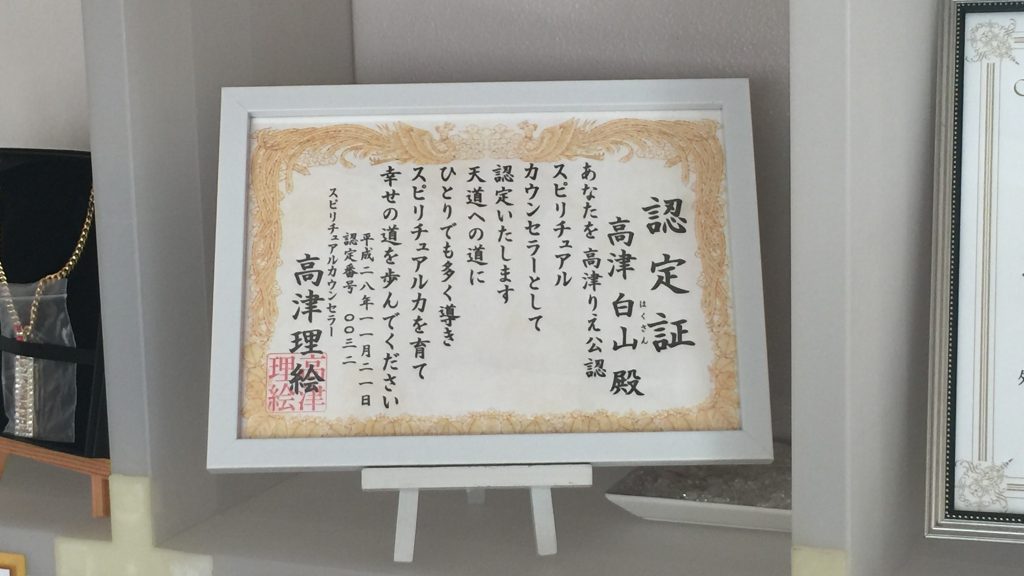 認定証
高津白山殿
はくさん
あなたを高津りえ公認
スピリチュアル
カウンセラーとして
認定いたします
天道への道に
ひとりでも多く導き
スピリチュアル力を育て
幸せの道を歩んでください
平成二八年一一月二一日
認定番号 〇〇三一
スピリチュアルカウンセラー
高津理絵
高津理絵